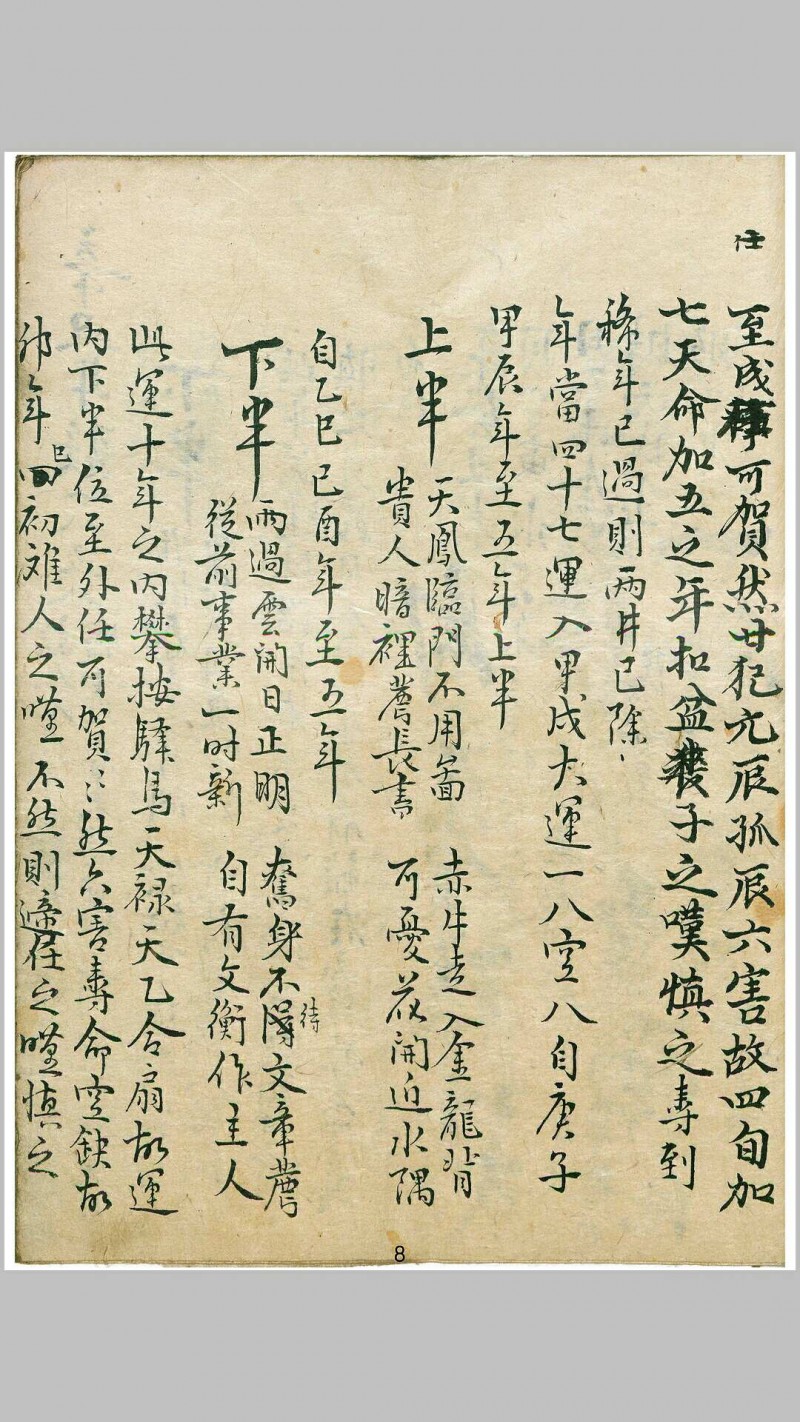 任
至戌可賀然廿犯亢辰孤辰六害故四旬加
七天命加五之年扣盆喪子之嘆慎之壽到
稀年已過則兩井已除
年當四十七運入甲戌大運一八空八自庚子
甲辰年至五年上半
上半
天鳳臨門不用啚
貴人暗裡薦長書
赤牛走入金龍背
可憂花開近水隅
自乙巳己酉年至五年
下半
雨過雲開日正明
從前事業一时新
奮身不待文章薦
自有文衡作主人
此運十年之内攀按驛馬天禄天乙合扇故運
内下半位至外任可賀〻然六害壽命空缺故
卯年巳初难人之嘆不然則遞任之嘆慎之
8